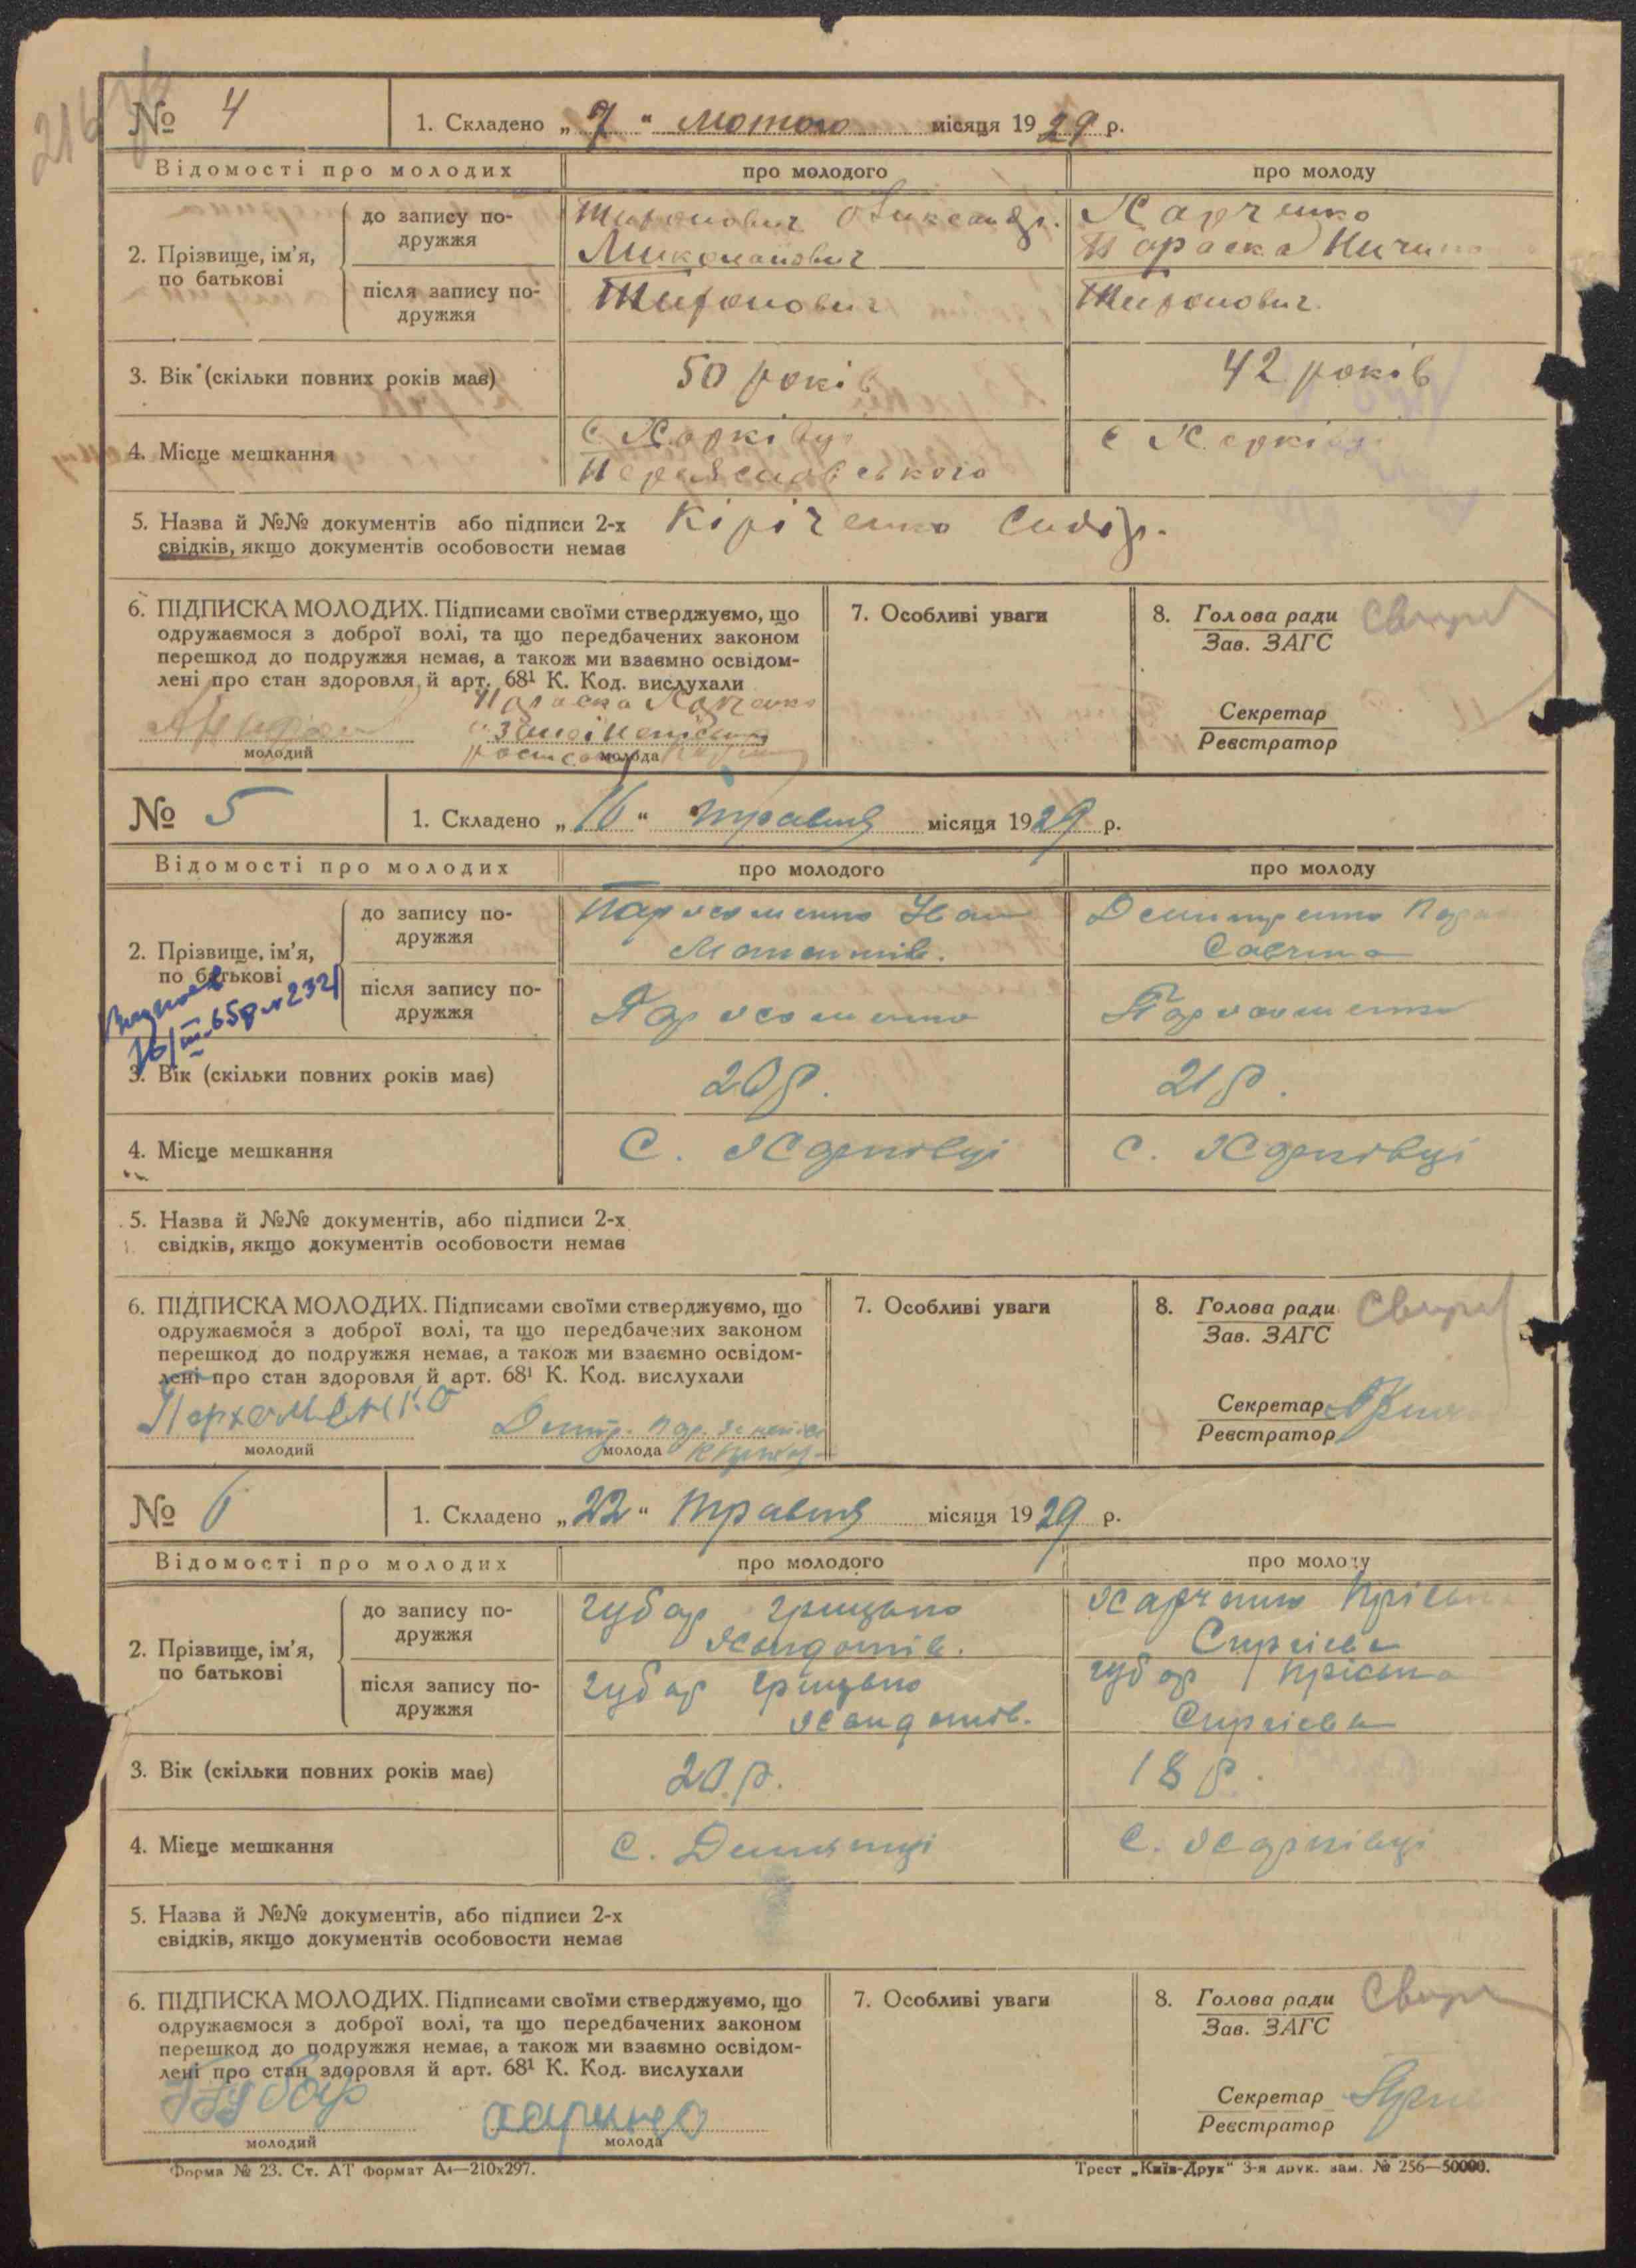 № 4
1. Складено „ 7 “ лютого місяця 1929 р.
Відомості про молодих
про молодого
про молоду
2. Прізвище, ім’я, по батькові
до запису по-
дружжя
Олександр.
Харченко
Параска
після запису по-
дружжя
3. Вік (скільки повних років має)
50 років
42 років
4. Місце мешкання
с. Харківці
Переяславського
с Харківці
5. Назва й №№ документів або підписи 2-х
свідків, якщо документів особовости немає
Кіріченко Сидор.
6. ПІДПИСКА МОЛОДИХ. Підписами своїми стверджуємо, що
одружаємося з доброї волі, та що передбачених законом
перешкод до подружжя немає, а також ми взаємно освідом-
лені про стан здоровля й арт. 68¹ К. Код. вислухали
Параска Харченко
молодий
молода
7. Особливі уваги
8. Голова ради
Зав. ЗАГС
Секретар
Реєстратор
№ 5
1. Складено „ 16 “ травня місяця 1929 р.
Відомості про молодих
про молодого
про молоду
2. Прізвище, ім’я,
по батькові
до запису по-
дружжя
Пархоменко Іван
Савична
після запису по-
дружжя
Пархоменко
Пархоменко
16/III-65р № 2321
3. Вік (скільки повних років має)
20 р.
21 р.
4. Місце мешкання
С. Харківці
С. Харківці
5. Назва й №№ документів, або підписи 2-х
свідків, якщо документів особовости немає
6. ПІДПИСКА МОЛОДИХ. Підписами своїми стверджуємо, що
одружаємося з доброї волі, та що передбачених законом
перешкод до подружжя немає, а також ми взаємно освідом-
лені про стан здоровля й арт. 68¹ К. Код. вислухали
Пархоменко
молодий
молода
7. Особливі уваги
8. Голова ради
Зав. ЗАГС
Секретар
Реєстратор
№ 6
1. Складено „ 22 “ травня місяця 1929 р.
Відомості про молодих
про молодого
про молоду
2. Прізвище, ім’я,
по батькові
до запису по-
дружжя
Губар Грицько
Харченко Пріська
Сергієва
після запису по-
дружжя
Губар Грицько
Губар Пріська
Сергієва
3. Вік (скільки повних років має)
20 р.
18 р.
4. Місце мешкання
С. Демьянці
С. Харківці
5. Назва й №№ документів, або підписи 2-х
свідків, якщо документів особовости немає
6. ПІДПИСКА МОЛОДИХ. Підписами своїми стверджуємо, що
одружаємося з доброї волі, та що передбачених законом
перешкод до подружжя немає, а також ми взаємно освідом-
лені про стан здоровля й арт. 68¹ К. Код. вислухали
Губар
молодий
молода
7. Особливі уваги
8. Голова ради
Зав. ЗАГС
Секретар
Реєстратор
Форма № 23. Ст. АТ формат А4—210х297.
Трест „Київ-Друк“ 3-я друк. зам. № 256—50000.